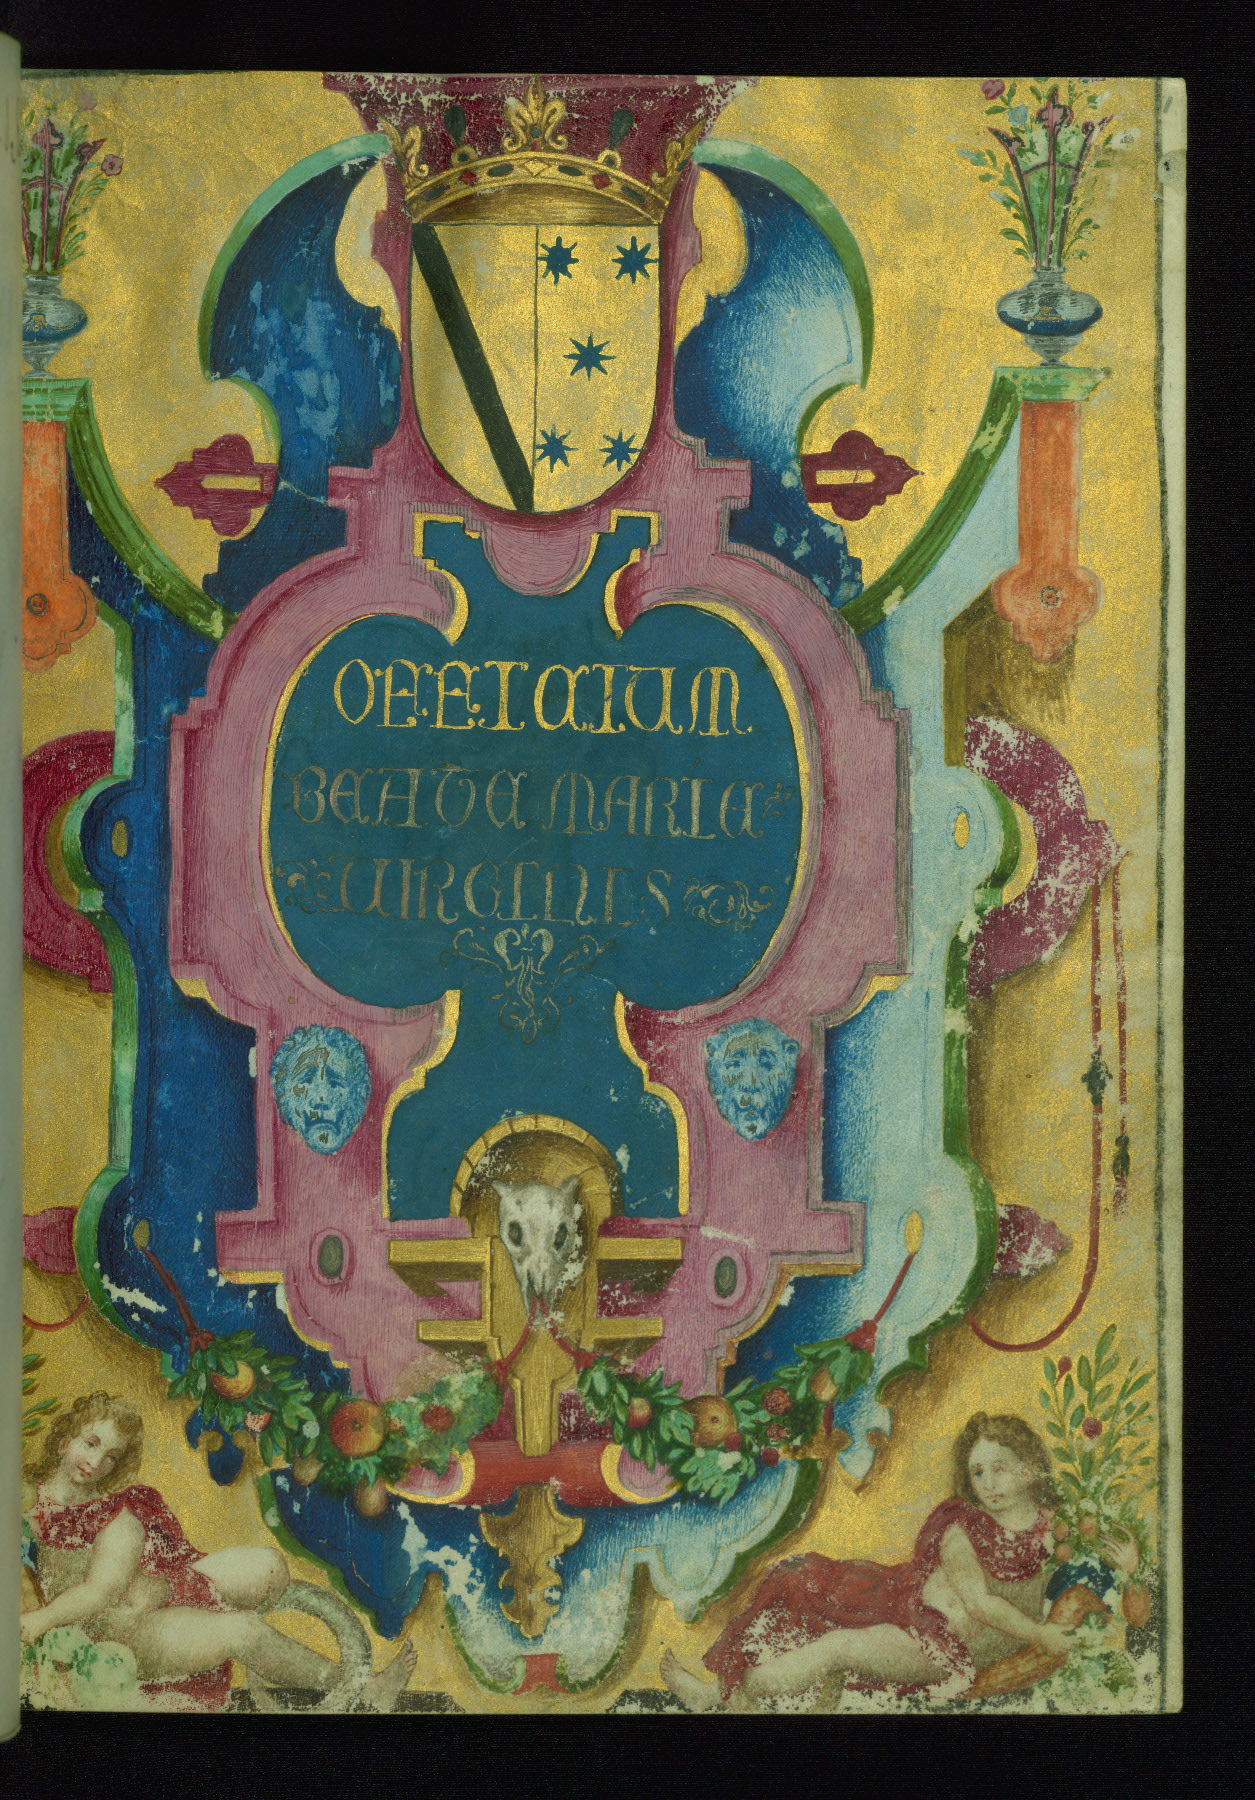 OFFICIUM
BEATE MARIE
VIRGINIS